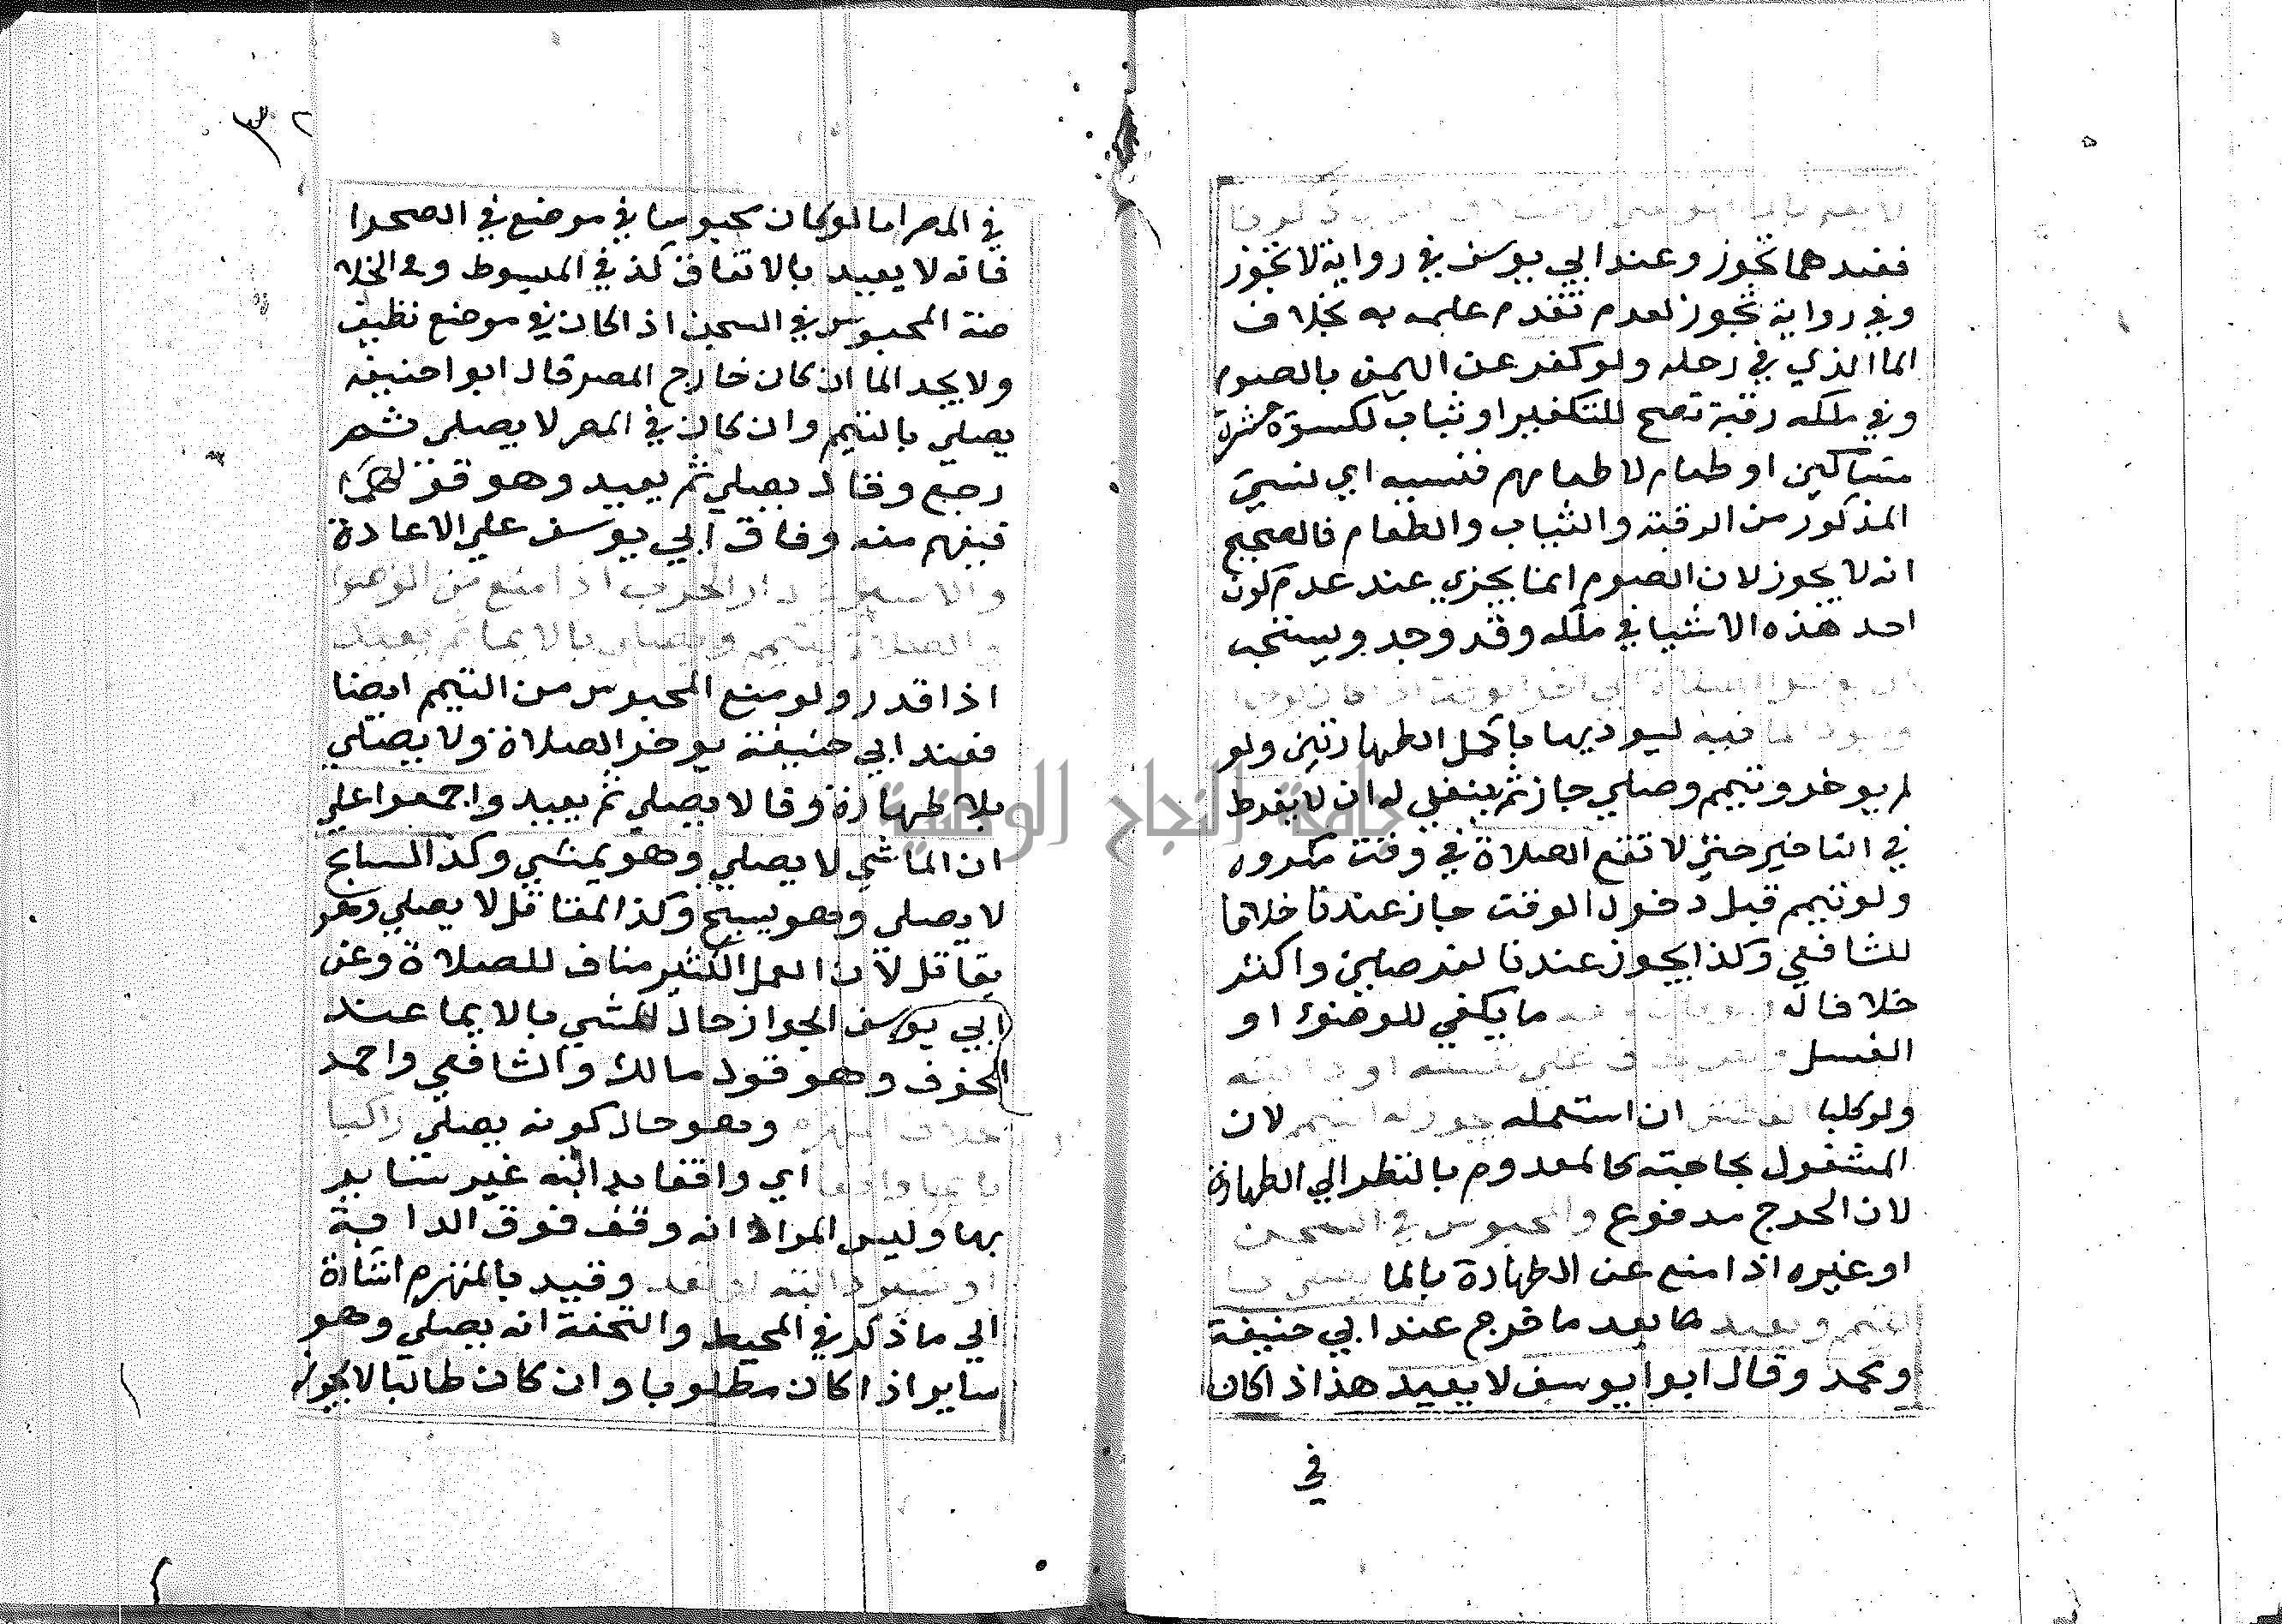 فعندهما تجوز وعند ابي يوسف في رواية لا تجوز
وفي رواية تجوز لعدم تقدم علمه به بخلاف
الما الذي في رحله ولو كفر عن اليمين بالصوم
وفي ملكه رقبة تصح للتكفير او ثياب لكسوة عشرة
مساكين او طعام لاطعامهم فنسيه اي نسي
المذكور من الرقبة والثياب والطعام فالصحيح
انه لا يجوز لان الصوم انما يجزي عند عدم كون
احد هذه الاشيا في ملكه وقد وجد ويستحب
فيه ليوديها باكمل الطهارتين ولو
لم يوخر وتيمم وصلي جاز ثم ينبغي له ان لا يفرط
في التاخير حتي لا تقع الصلاة في وقت مكروه
ولو تيمم قبل دخول الوقت جاز عندنا خلافا
للشافعي وكذا يجوز عندنا لفرضين واكثر
خلافا له ما يكفي للوضوء او
الغسل علي نفسه او دابته
ولو كلبا ان استعمله يجوز له التيمم لان
المشغول بحاجته كالمعدوم بالنظر الي الطهارة
لان الحرج مدفوع والمحبوس في السجن
او غيره اذا منع عن الطهارة بالما يصلي با
لتيمم ويعيد ها بعد ما خرج عند ابي حنيفة
ومحمد وقال ابوا يوسف لا يعيد هذا اذ اكان
في
٣٢
في المصر اما لو كان محبوسا في موضع في الصحرا
فانه لا يعيد بالاتفاق كذ في المبسوط وفي الخلا
صة المحبوس في السجن اذ اكان في موضع نظيف
ولا يجد الما ان كان خارج المصر قال ابو احنيفه
يصلي بالتيمم وان كان في المصر لا يصلي ثم
رجع وقال يصلي ثم يعيد وهو قولهما
فيفهم منه وفاق ابي يوسف علي الاعادة
والاسير في دار الحرب اذا منع من الوضوا
و الصلاة يتيمم ويصلي بالايما ثم يعيد
اذا قدر ولو منع المحبوس من التيمم ايضا
فعند ابي حنيفة يوخر الصلاة ولا يصلي
بلا طهارة وقالا يصلي ثم يعيد واجمعوا علي
ان الماشي لا يصلي وهو يمشي وكذ السابح
لا يصلي وهو يسبح وكذ المقاتل لا يصلي وهو
يقاتل لان العمل الكثير مناف للصلاة وعن
ابي يوسف الجواز حال المشي بالايما عند
الخوف وهو قول مالك والشافعي واحمد
خلاف المنهزم وهو حال كونه يصلي راكبا
اي واقفا بدابته غير ساير
بها وليس المراد انه وقف فوق الدابة
او تسير دابته وقيد بالمنهزم اشارة
الي ما ذكر في المحيط والتحفة انه يصلي وهو
ساير اذ اكان مطلوبا وان كان طالبا لا يجوز
جامعة النجاح الوطنية